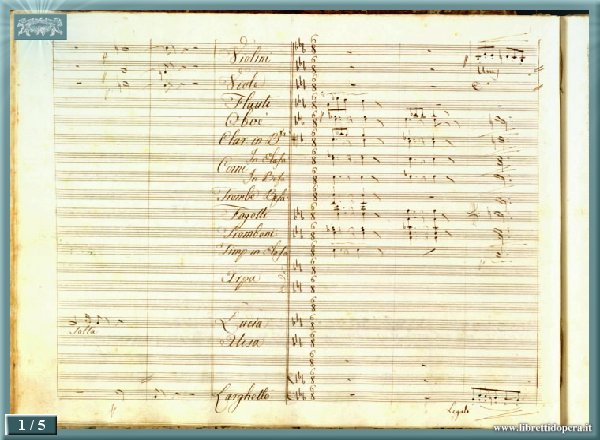 Violini
Viole
Flauti
Oboi
Clar: in B
Corni
In Elafa
In Befa
Trombe
Fagotti
Tromboni
Timp in Elafa
Arpa
Lucia
Alisa
Larghetto
Legato
1 / 5
www.librettidopera.it